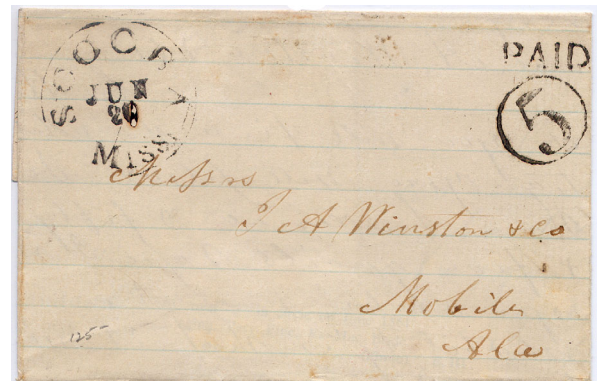 SCOOCBA
JUN
20
MISS.
PAID
5
Messrs
J A Winston & co
Mobile
Ala
125-